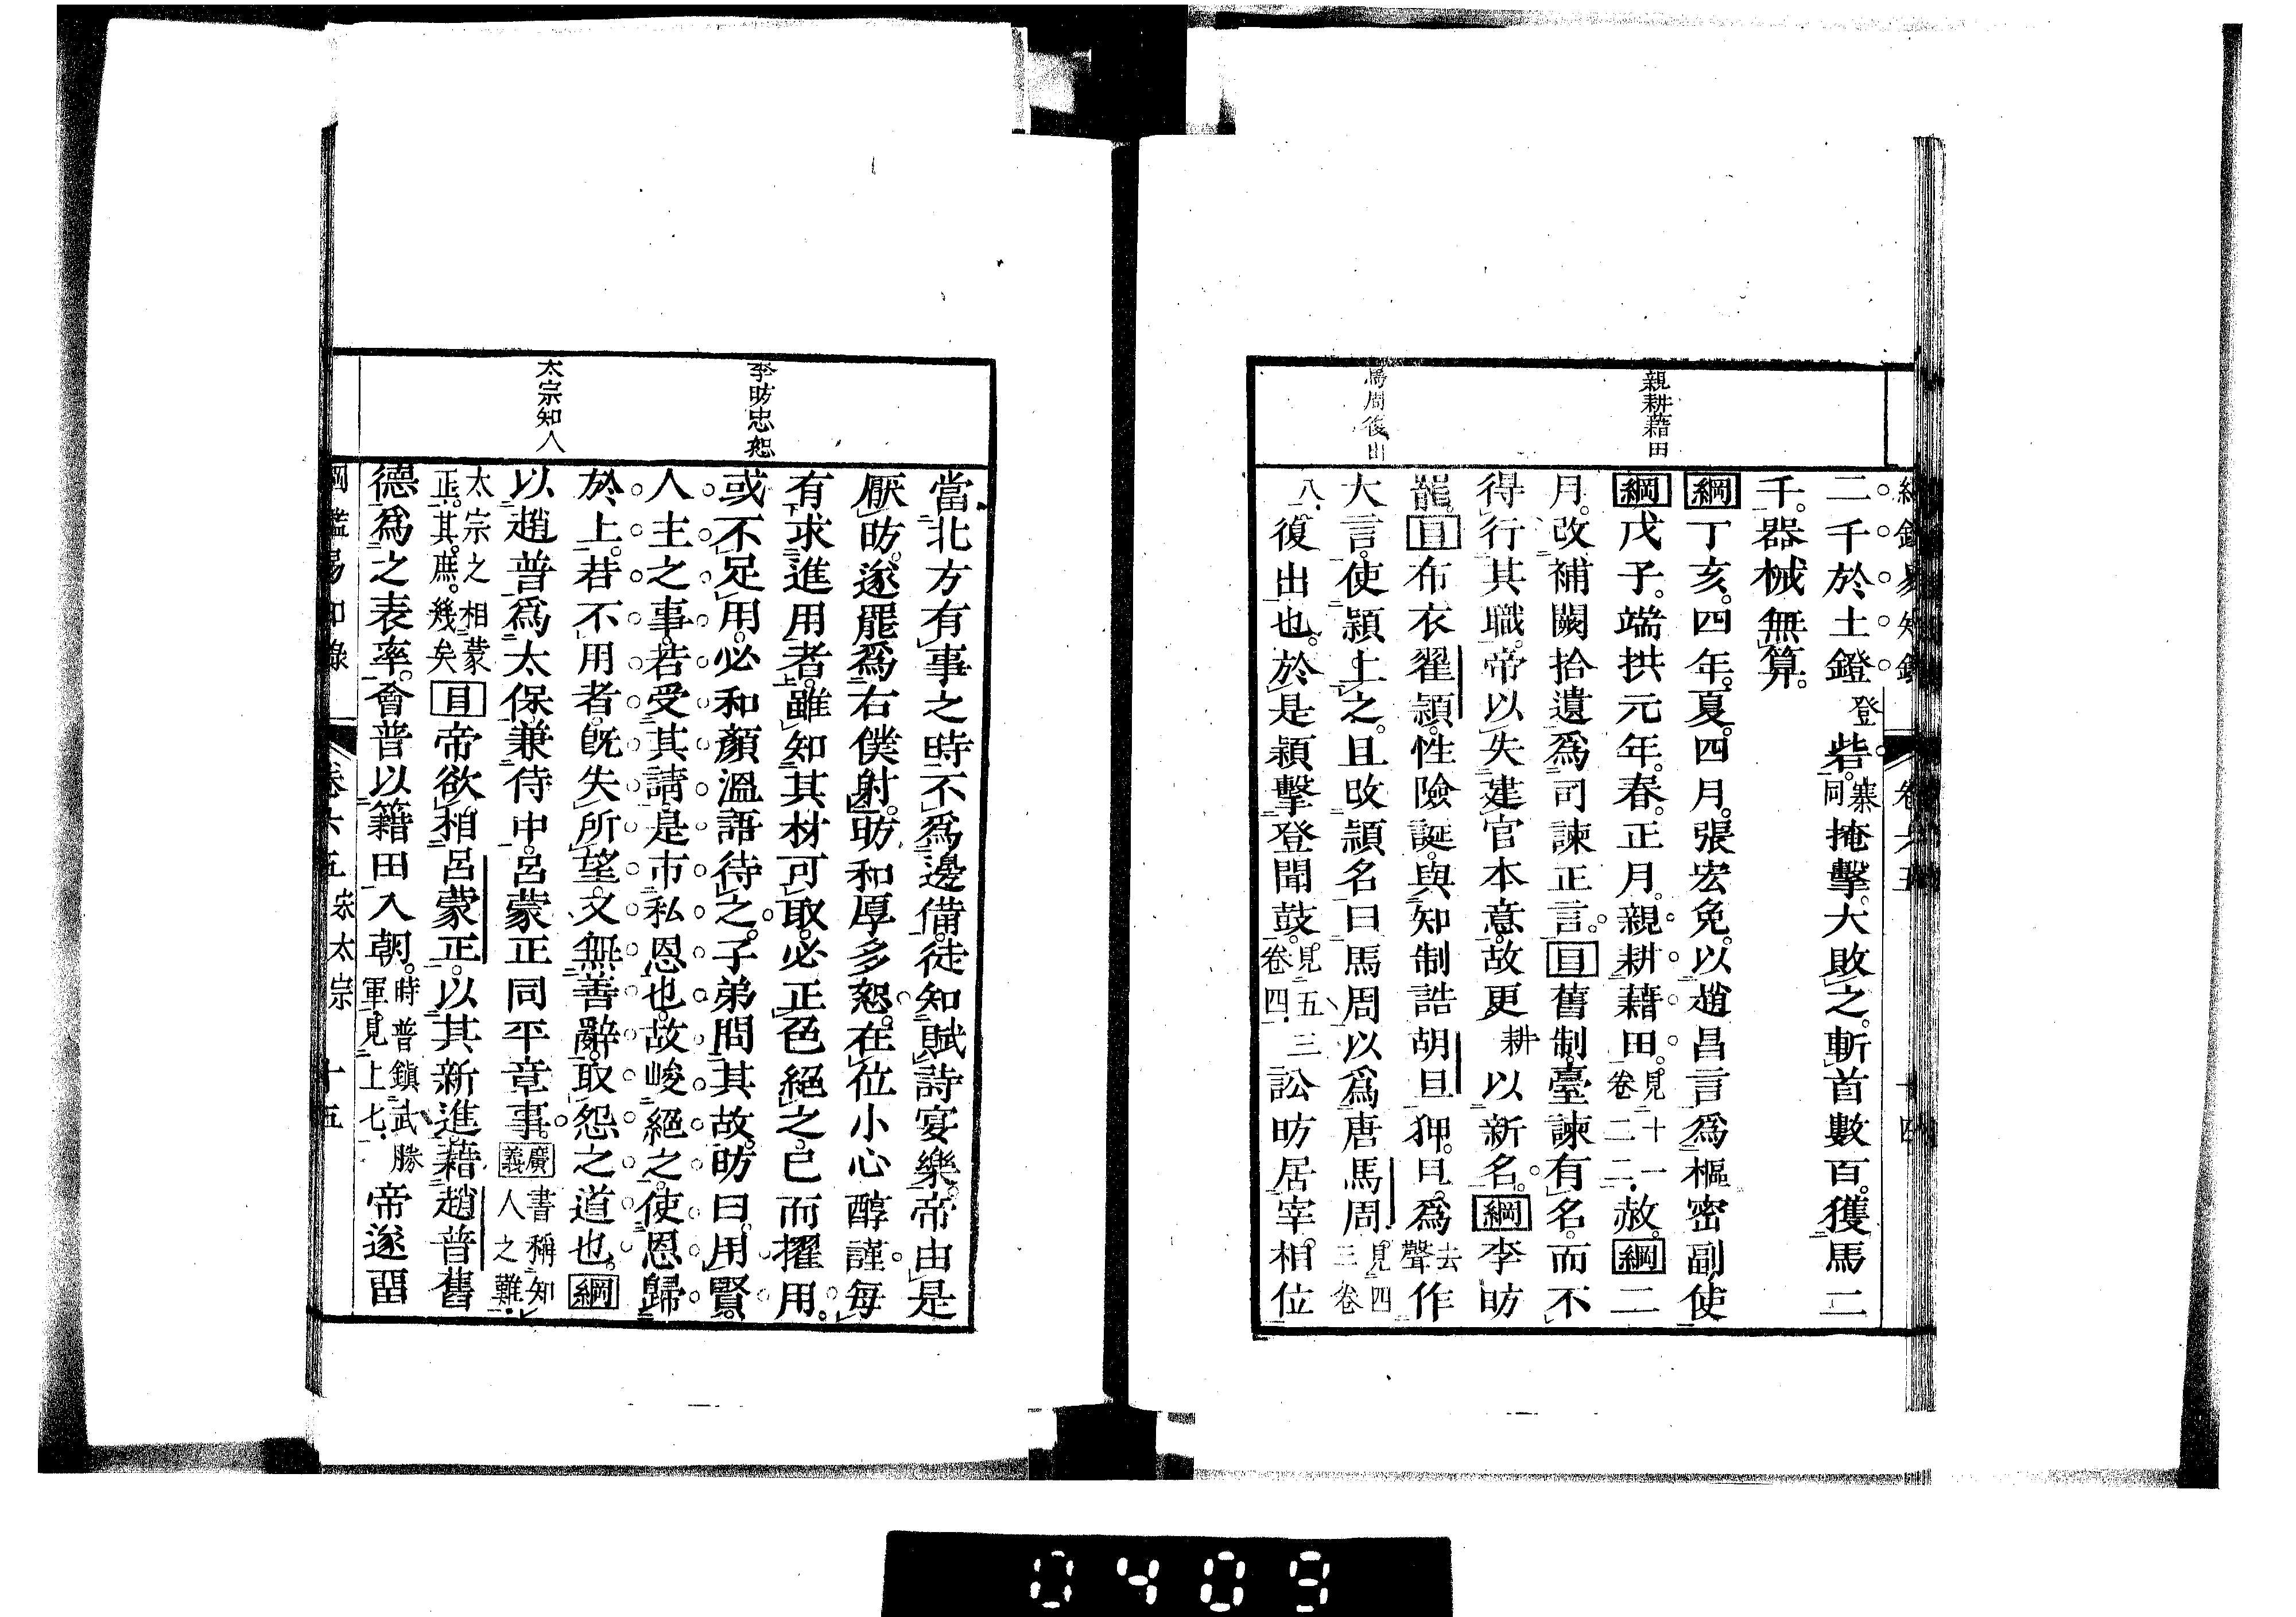 親耕藉田
馬周復出
二千於土鐙登砦寨同掩擊。大敗之。斬首數百。獲馬二
千。器械無算。
綱丁亥。四年。夏。四月。張宏免。以趙昌言爲樞密副使
綱戊子。端拱元年。春。正月。親耕藉田。見十一卷二二。赦。綱二
月。改補闕拾遺爲司諫正言。目舊制。臺諫有名。而不
得行其職。帝以失建官本意。故更耕以新名。綱李昉
罷。目布衣翟穎。性險誕。與知制誥胡旦狎。旦。爲去聲作
大言。使穎上之。且改穎名曰馬周。以爲唐馬周。見四三卷
八。復出也。於是穎擊登聞鼓。見五三卷四。訟昉居宰相位
李昉忠恕
太宗知人
當北方有事之時。不爲邊備。徒知賦詩宴樂。帝由是
厭昉。遂罷爲右僕射。昉和厚多恕。在位小心醇謹。每
有求進用者。雖知其材可取。必正色絕之。已而擢用。
或不足用。必和顏溫語待之。子弟問其故。昉曰。用賢。
人主之事。若受其請。是市私恩也。故峻絕之。使恩歸
於上。若不用者。既失所望。又無善辭。取怨之道也。綱
以趙普爲太保兼侍中。呂蒙正同平章事。廣義書稱知人之難。
太宗之相蒙正。其庶幾矣目帝欲相呂蒙正。以其新進。藉趙普舊
德。爲之表率。會普以籍田入朝。時普鎮武勝軍。見上七。帝遂畱
綱鑑易知錄 卷六五 宋太宗 十五